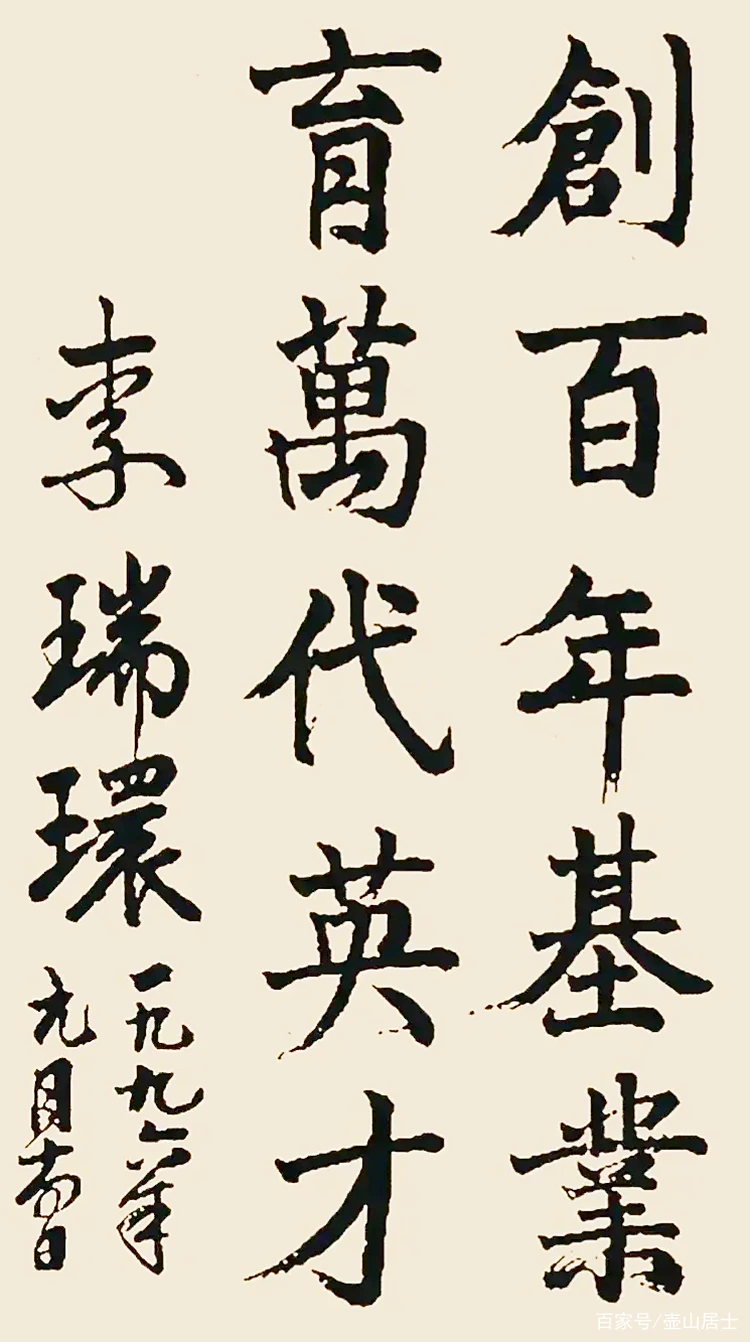 創百年基業
育萬代英才
李瑞環
一九九六年
九月
百家号/壶山居士